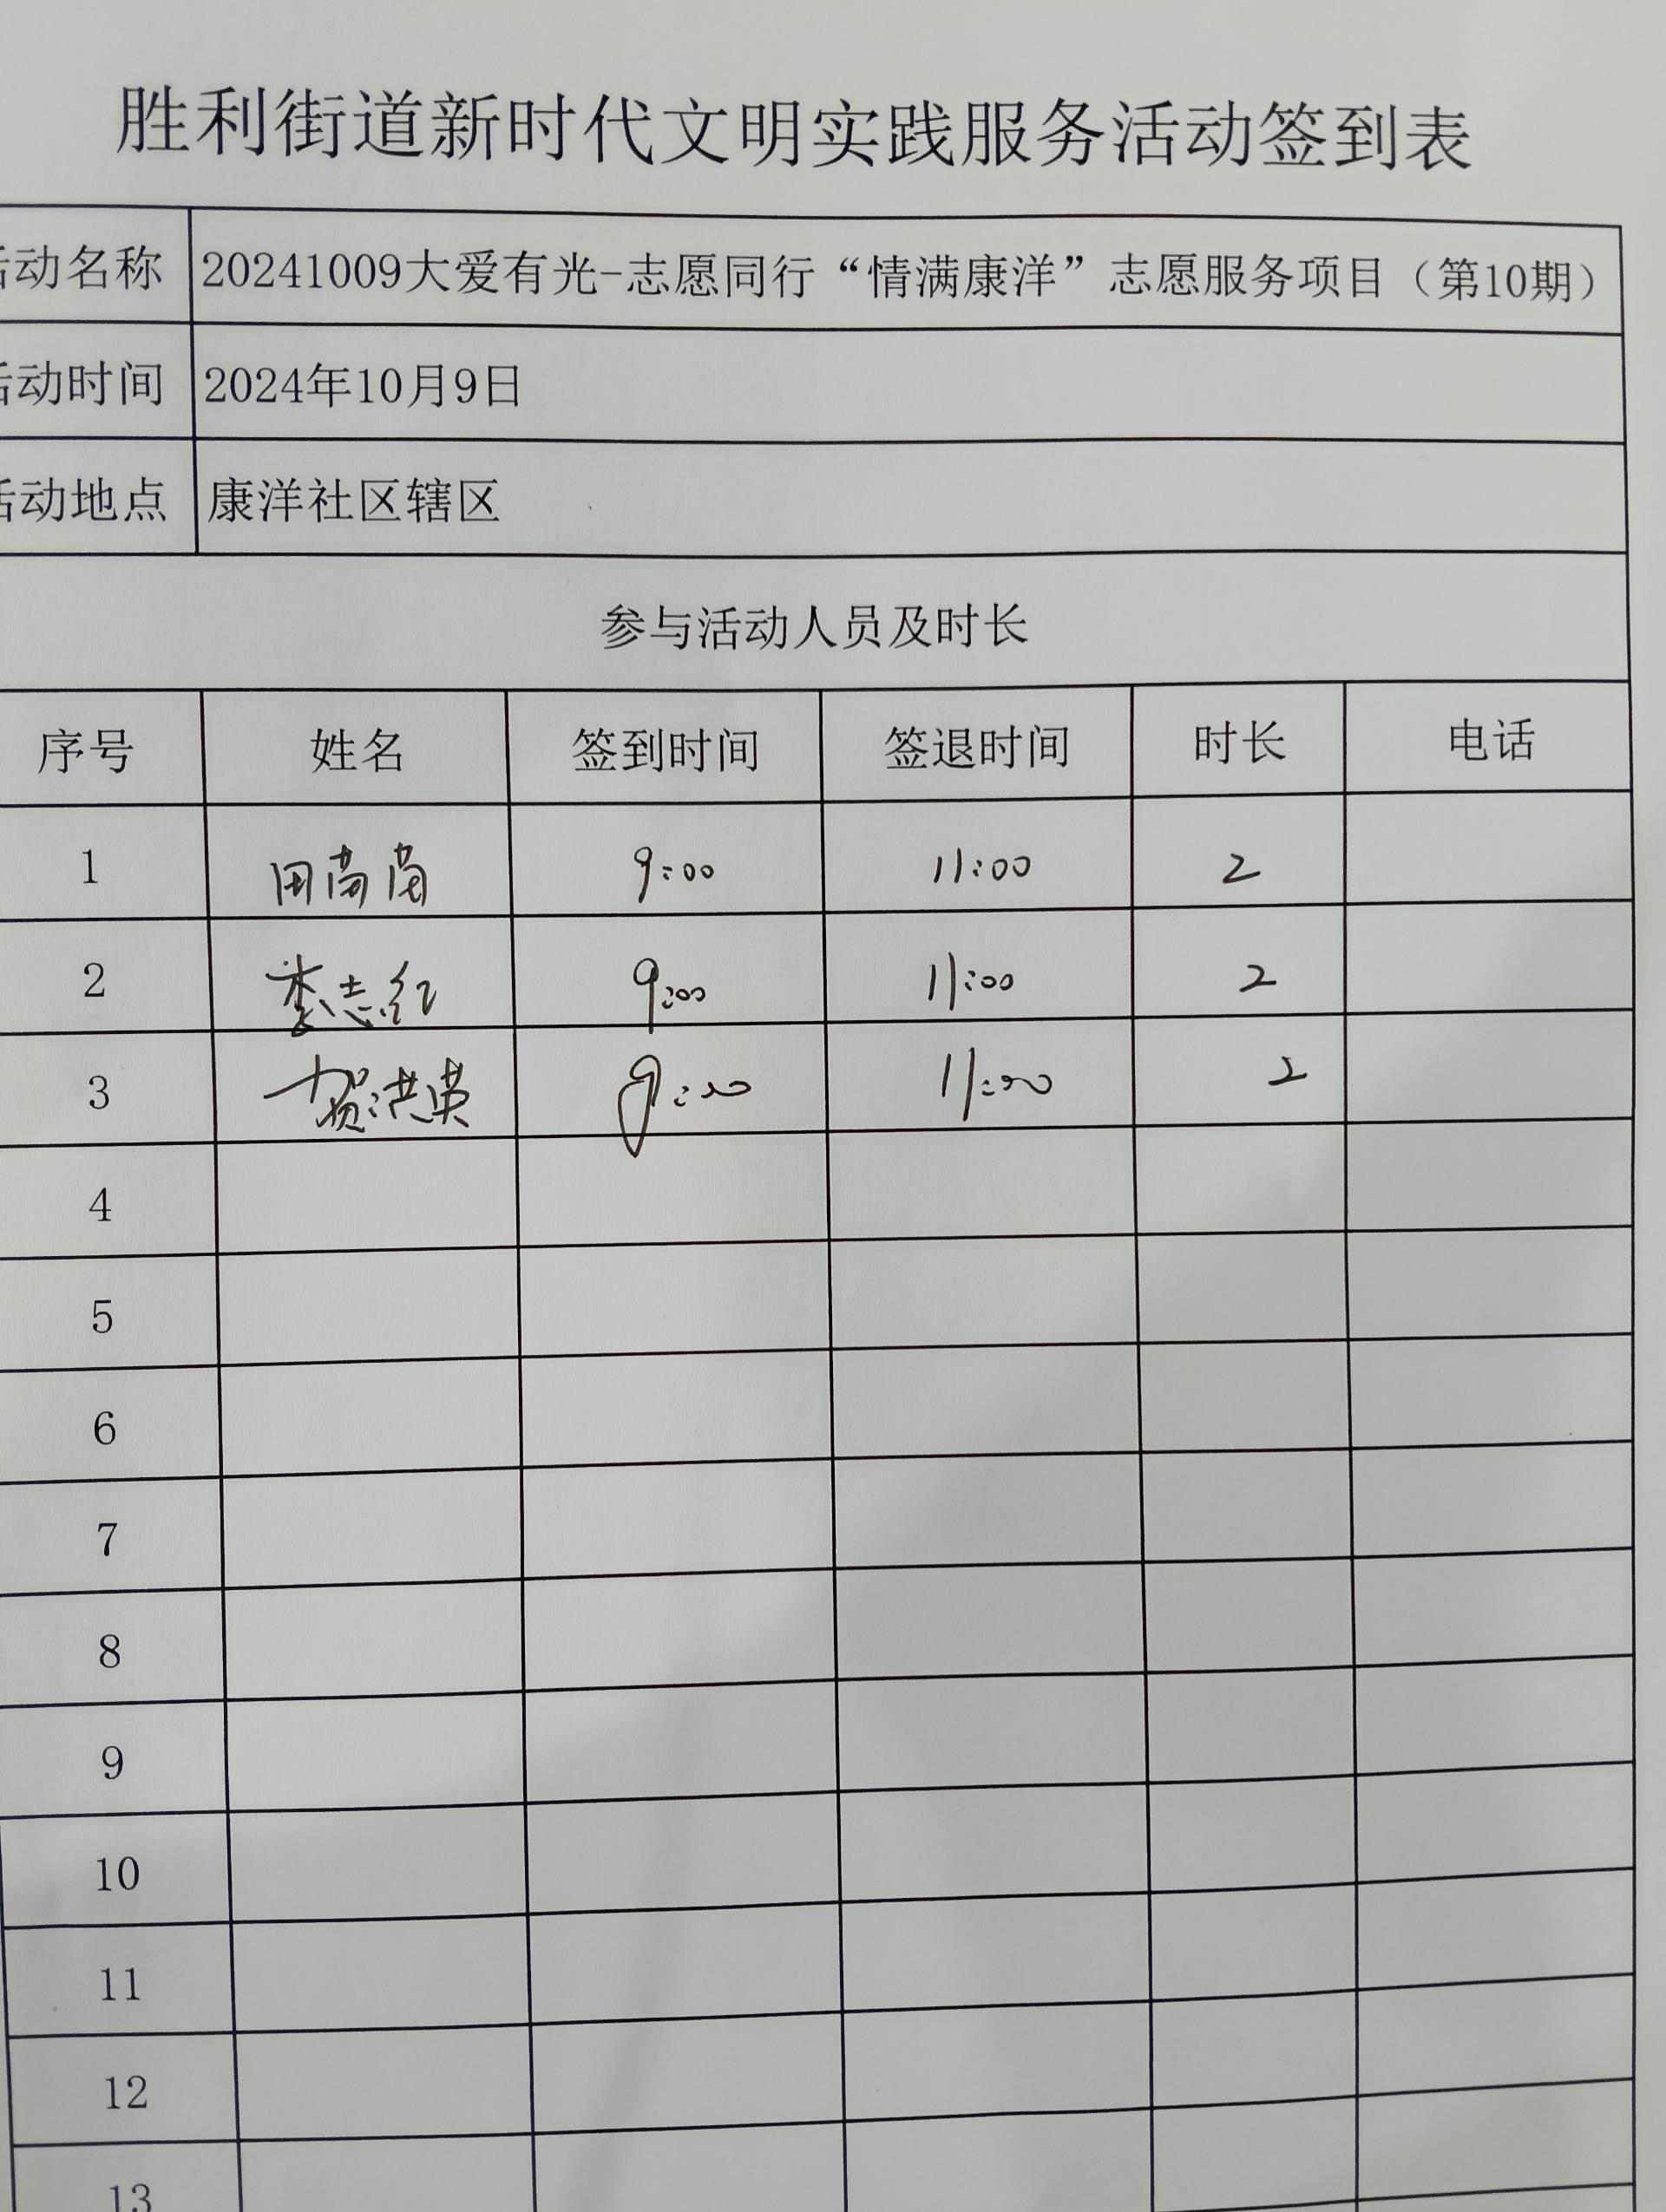 胜利街道新时代文明实践服务活动签到表
活动名称 20241009大爱有光-志愿同行“情满康洋”志愿服务项目（第10期）
活动时间 2024年10月9日
活动地点 康洋社区辖区
参与活动人员及时长
序号 姓名 签到时间 签退时间 时长 电话
1 田 9:00 11:00 2
2 李志红 9:00 11:00 2
3 贺洪英 9:00 11:00 2
4
5
6
7
8
9
10
11
12
13